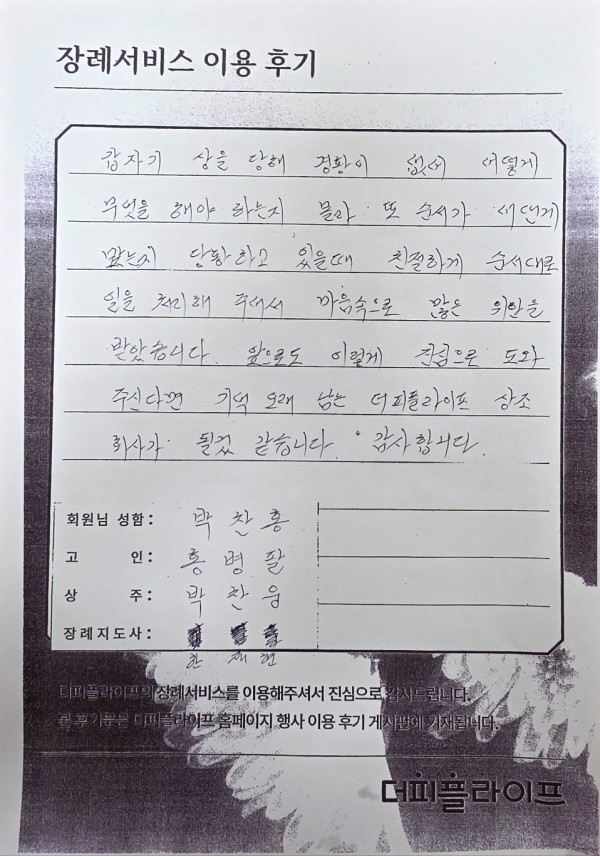 장례서비스 이용 후기
갑자기 상을 당해 경황이 없서 어떻게
무엇을 해야 하는지 몰라 또 순서가
맞는지 당황하고 있을때 친절하게 순서대로
일을 처리해 주셔서 마음속으로 많은 위안을
받았습니다. 앞으로도 이렇게 진심으로 도와
주신다면 기억 오래 남는 더피플라이프 상조
회사가 될것 같습니다. 감사합니다.
회원님 성함 : 박찬홍
고 인 : 홍병팔
상 주 : 박찬웅
장례지도사 :
더피플라이프의 장례서비스를 이용해주셔서 진심으로 감사드립니다.
본 후기문은 더피플라이프 홈페이지 행사 이용 후기 게시판에 기재됩니다.
더피플라이프